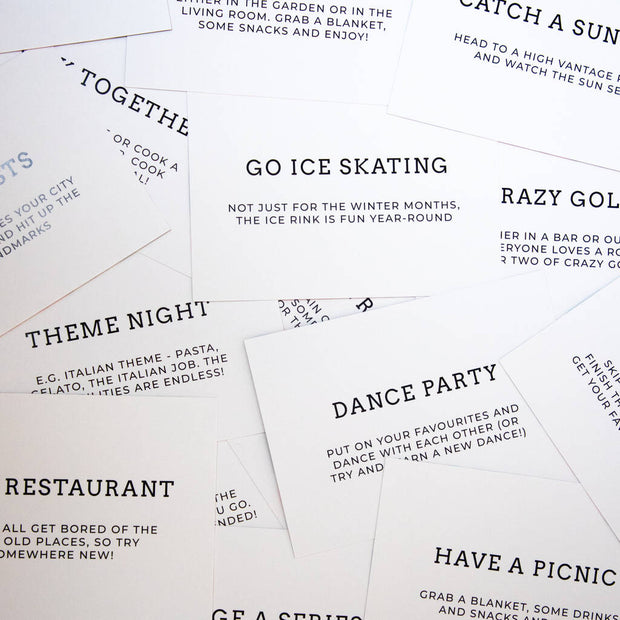 IN THE GARDEN OR IN THE
LIVING ROOM. GRAB A BLANKET,
SOME SNACKS AND ENJOY!
CATCH A SUN
HEAD TO A HIGH VANTAGE
AND WATCH THE SUN SE
TOGETHE
OR COOK A
COOK
STS
ES YOUR CITY
ND HIT UP THE
NDMARKS
GO ICE SKATING
NOT JUST FOR THE WINTER MONTHS,
THE ICE RINK IS FUN YEAR-ROUND
RAZY GOL
IER IN A BAR OR OU
ERYONE LOVES A RO
R TWO OF CRAZY GO
THEME NIGHT
E.G. ITALIAN THEME - PASTA,
GELATO, THE ITALIAN JOB. THE
ILITIES ARE ENDLESS!
DANCE PARTY
PUT ON YOUR FAVOURITES AND
DANCE WITH EACH OTHER (OR
TRY AND LEARN A NEW DANCE!)
SKIP
FINISH TH
GET YOUR FA
RESTAURANT
ALL GET BORED OF THE
OLD PLACES, SO TRY
OMEWHERE NEW!
THE
U GO.
NDED!
HAVE A PICNIC
GRAB A BLANKET, SOME DRINKS
AND SNACKS AND
GE A SERIES